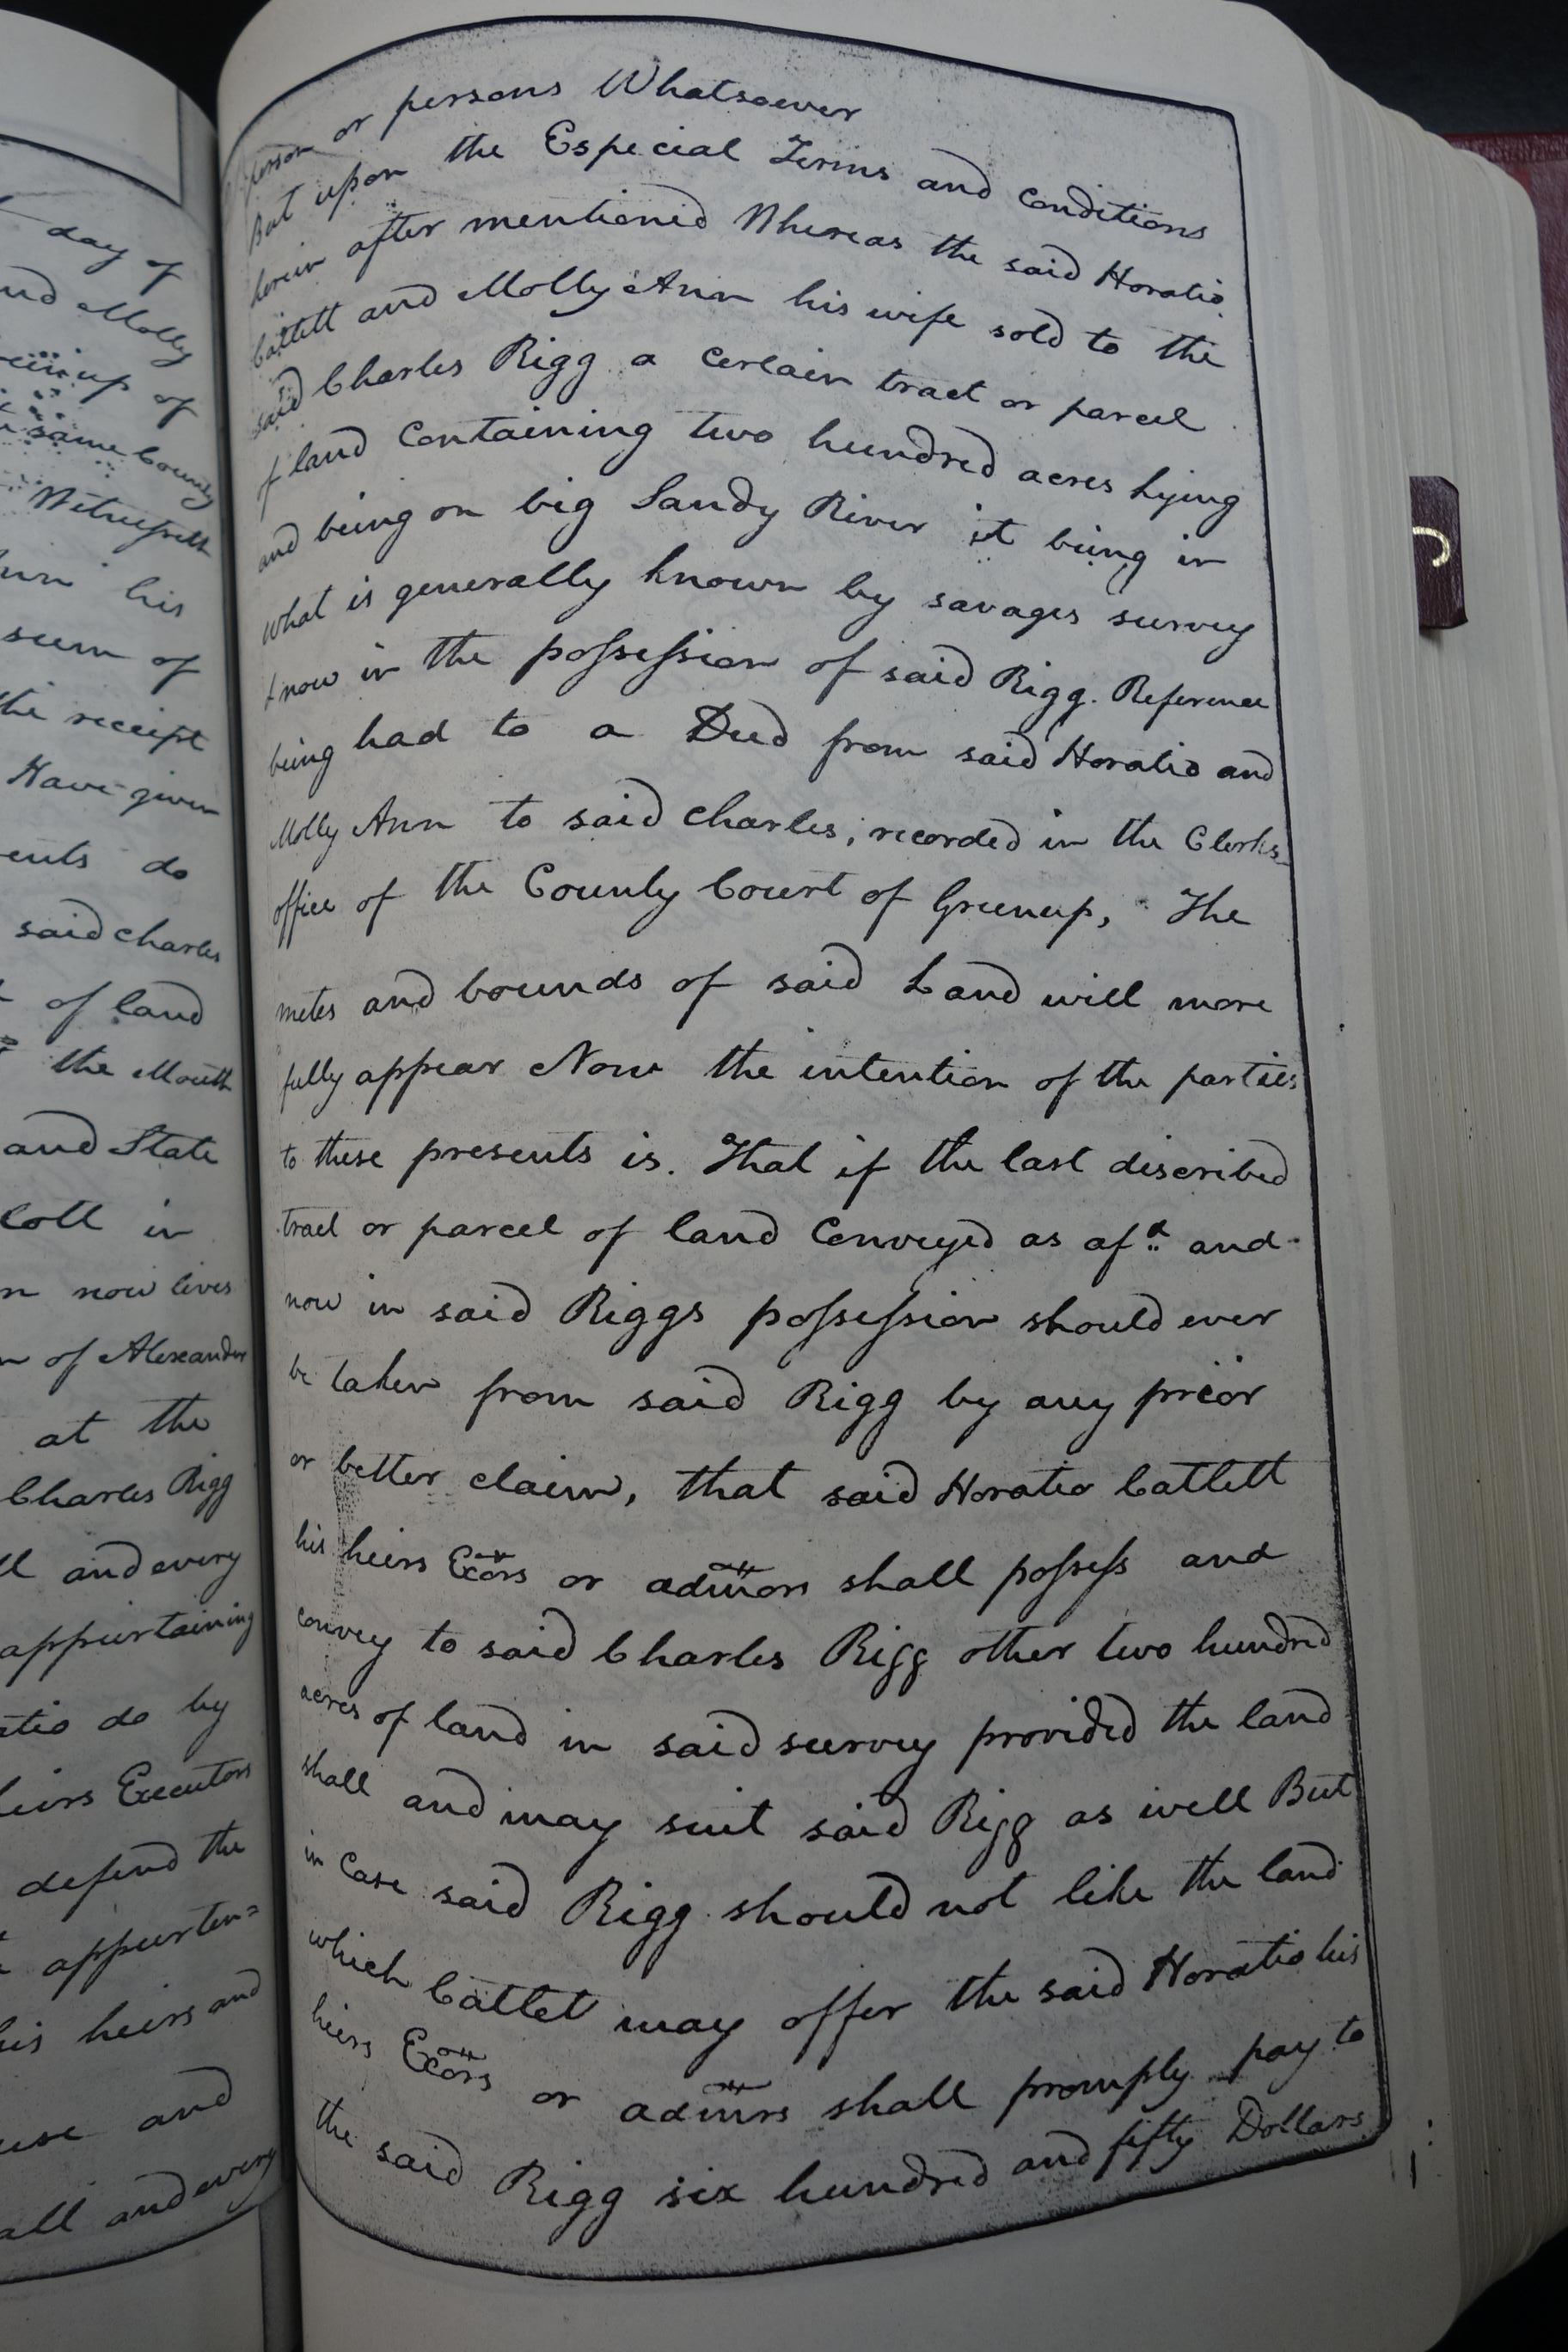 day of
and Molly
up of
same County
Witnesseth
his
sum of
the receipt
Have given
do
said Charles
of land
the Mouth
and State
in
now lives
of Alexander
at the
Charles Rigg
and every
appurtaining
do by
heirs Executors
defend the
appurten=
his heirs and
use and
all and every
person or persons Whatsoever
But upon the Especial Terms and Conditions
herein after mentioned Whereas the said Horatio
Catlett and Molly Ann his wife sold to the
said Charles Rigg a certain tract or parcel
of land Containing two hundred acres Lying
and being on big Sandy River it being in
what is generally known by savages survey
& now in the possession of said Rigg. Reference
being had to a Deed from said Horatio and
Molly Ann to said Charles, recorded in the Clerks
office of the County Court of Greenup, The
metes and bounds of said Land will more
fully appear Now the intention of the parties
to these presents is. That if the last discribed
tract or parcel of land Conveyed as afd and
now in said Riggs possession should ever
be taken from said Rigg by any prior
or better claim, that said Horatio Catlett
his heirs Exors or admors shall possess and
convey to said Charles Rigg other two hundred
acres of land in said survey provided the land
shall and may suit said Rigg as well But
in Case said Rigg should not like the land
which Catlet may offer the said Horatio his
heirs Exors or admrs shall promply pay to
the said Rigg six hundred and fifty Dollars